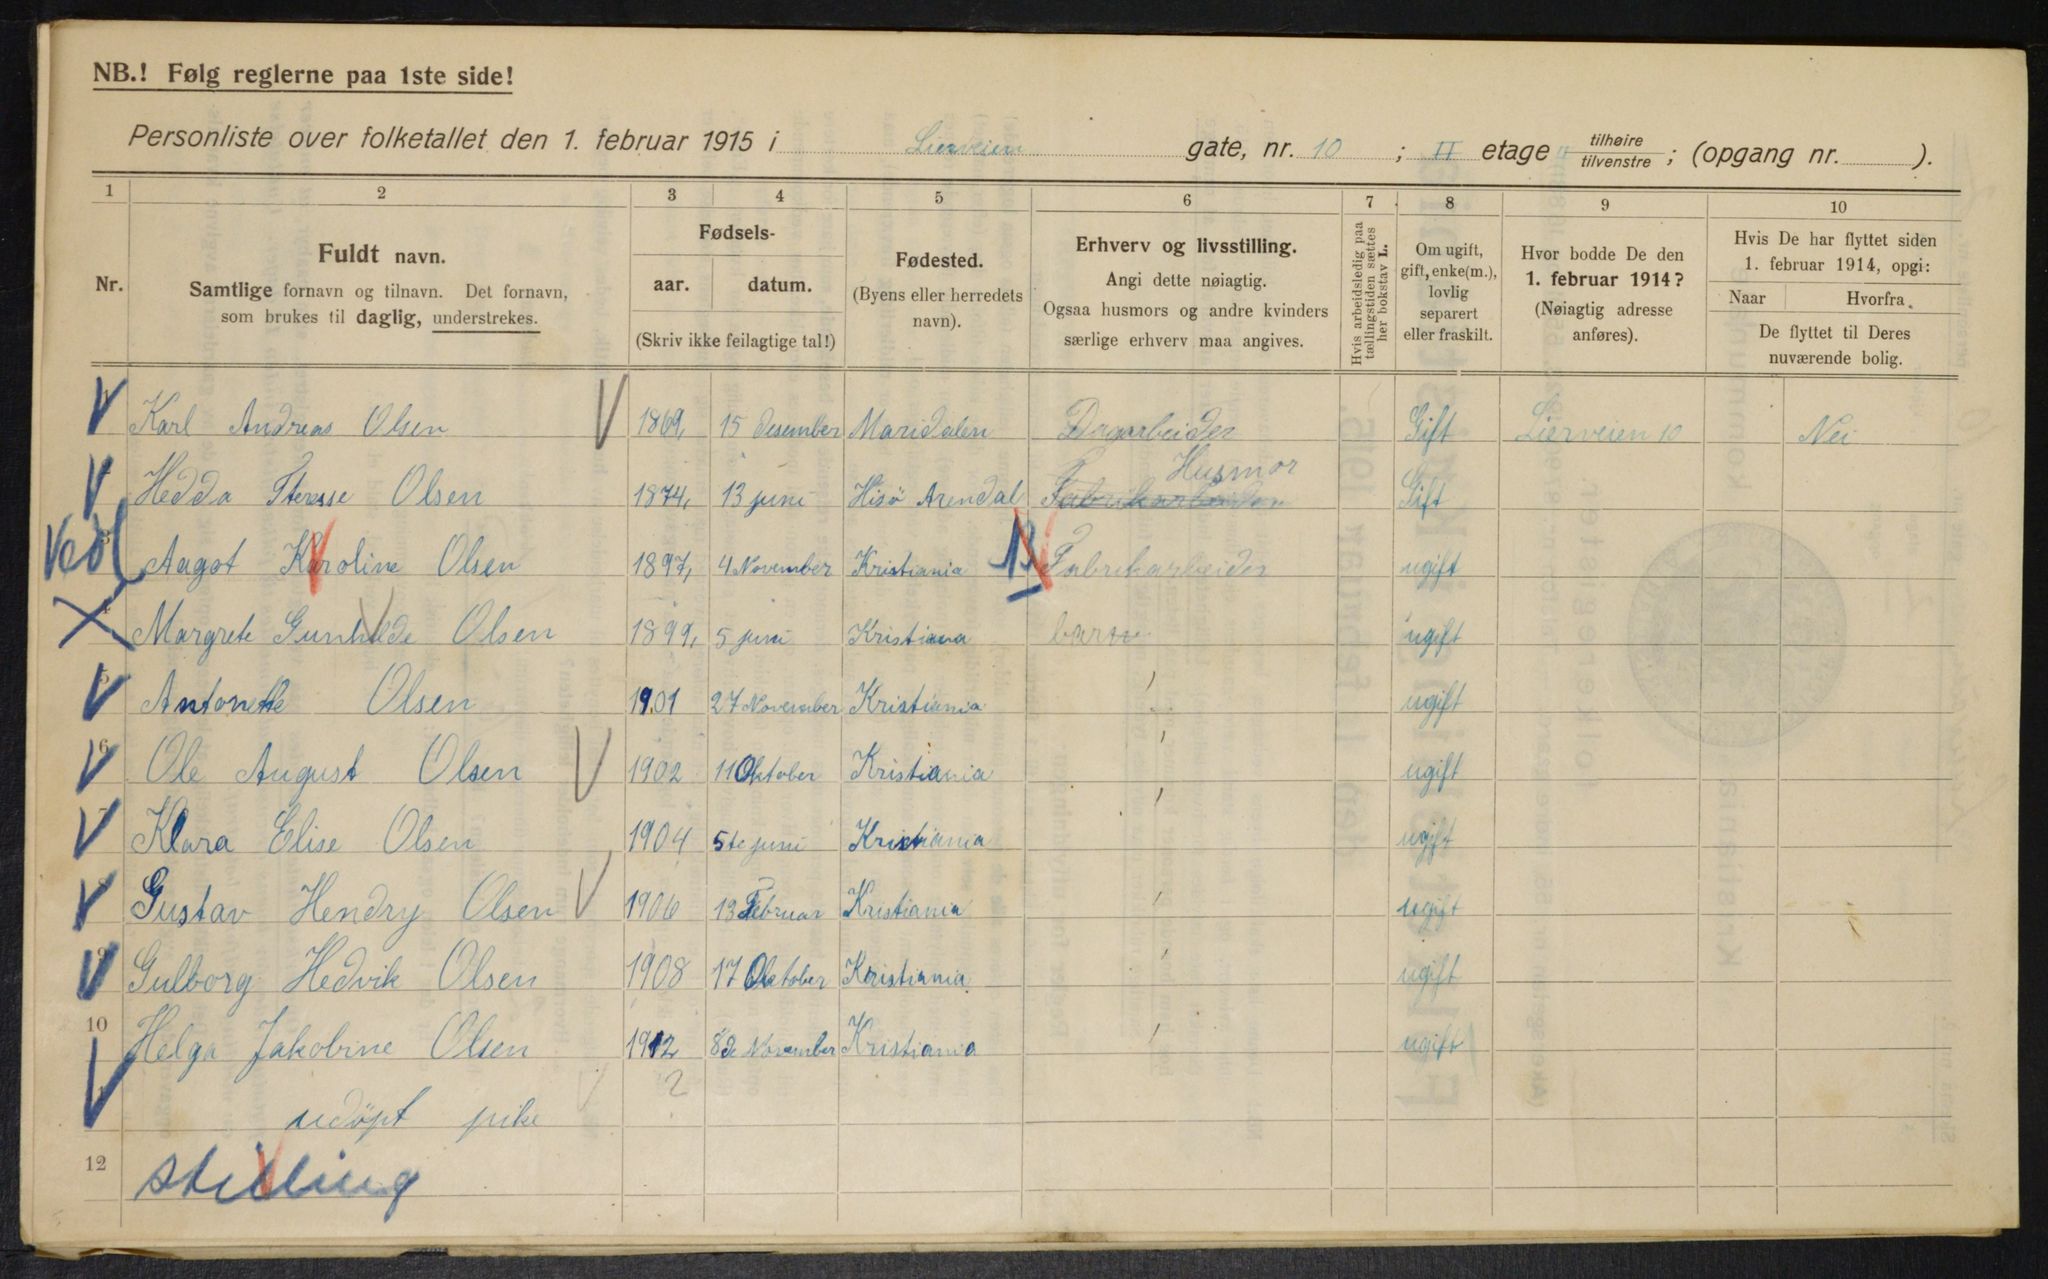 NB.! Følg reglerne paa 1ste side!
Personliste over folketallet den 1. februar 1915 i Lierveien gate, nr. 10 ; II etage tilhøire tilvenstre ; (opgang nr. ).
1 2 3 4 5 6 7 8 9 10
Nr.
Fuldt navn.
Samtlige fornavn og tilnavn. Det fornavn,
som brukes til daglig, understrekes.
Fødsels-
aar. datum.
(Skriv ikke feilagtige tal!)
Fødested.
(Byens eller herredets
navn).
Erhverv og livsstilling.
Angi dette nøiagtig.
Ogsaa husmors og andre kvinders
særlige erhverv maa angives.
Hvis arbeidsledig paa
tællingstiden sættes
her bokstav L.
Om ugift,
gift, enke(m.),
lovlig
separert
eller fraskilt.
Hvor bodde De den
1. februar 1914?
(Nøiagtig adresse
anføres).
Hvis De har flyttet siden
1. februar 1914, opgi:
Naar Hvorfra
De flyttet til Deres
nuværende bolig.
Karl Andreas Olsen 1869, 15 desember Maridalen Dagarbeider Gift Lierveien 10 Nei
Husmor
Hedda Therese Olsen 1874, 13 juni Hisö Arendal Fabrikarbeider Gift
3 Aagot Karoline Olsen 1897, 4 November Kristiania Fabrikarbeider ugift
4 Margrete Gunhilde Olsen 1899, 5 juni Kristiana barn ugift
5 Antonette Olsen 1901 27 November Kristiania ugift
6 Ole August Olsen 1902 11 Oktober Kristiania ugift
7 Klara Elise Olsen 1904 5te juni Kristiania ugift
8 Gustav Hendry Olsen 1906 13 Februar Kristiania ugift
9 Gulborg Hedvik Olsen 1908 17 Oktober Kristiania ugift
10 Helga Jakobine Olsen 1912 8de November Kristiania ugift
2
udöpt pike
12 stilling